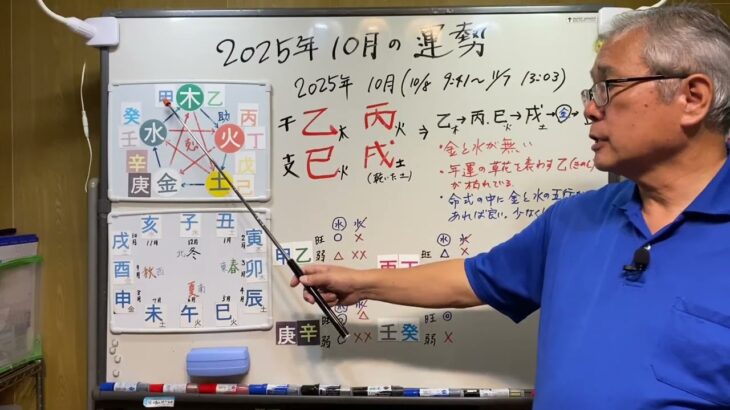 2025年10月の運勢
2025年 10月(10/8 9:41〜11/7 13:03)
干 乙木 丙火 ⇒ 乙木→丙、巳火→戌土→金→
支 巳火 戌土
(乾いた土)
・金と水が無い
・年運の草花を表わす乙(きのと)
が枯れている
・命式の中に金と水の五行が
あれば良い。少なく
甲 木 乙
癸 助 丙
壬 水 剋 火 丁
辛 戊
庚 金 土 己
亥 子 丑
戌 10月 11月 12月 1月 寅
北 冬
酉 秋 西 東 春 卯
申 南 夏 辰
未 午 巳
水 火
甲乙 旺 ○ ×
弱 △ ××
水 火
丙丁 旺
弱 △ ×
庚辛 旺 △
弱 ○ ××
壬癸 旺 ◎
弱 ××